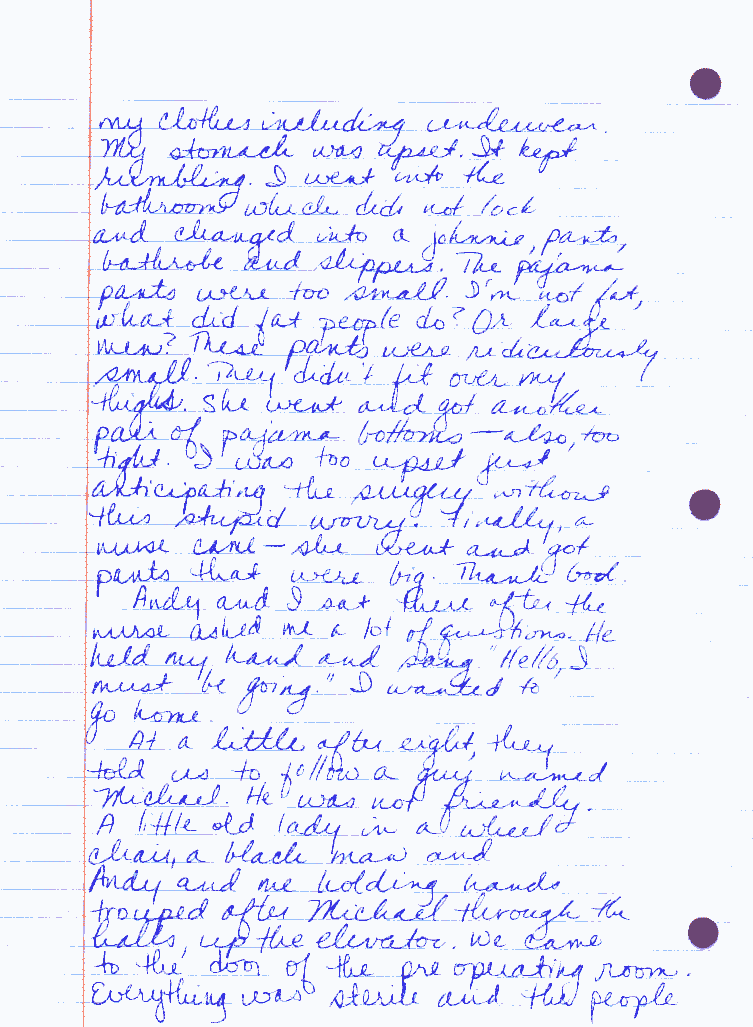 my clothes including underwear.
My stomach was upset. It kept
rumbling. I went into the
bathroom which did not lock
and changed into a johnnie, pants,
bathrobe and slippers. The pajama
pants were too small. I'm not fat,
what did fat people do? Or large
men? These pants were ridiculously
small. They didn't fit over my
thighs. She went and got another
pair of pajama bottoms—also, too
tight. I was too upset just
anticipating the surgery without
this stupid worry. Finally, a
nurse came—she went and got
pants that were big. Thank God.
Andy and I sat there after the
nurse asked me a lot of questions. He
held my hand and sang "Hello, I
must be going." I wanted to
go home.
At a little after eight, they
told us to follow a guy named
Michael. He was not friendly.
A little old lady in a wheel
chair, a black man and
Andy and me holding hands
trouped after Michael through the
halls, up the elevator. We came
to the door of the pre operating room.
Everything was sterile and the people